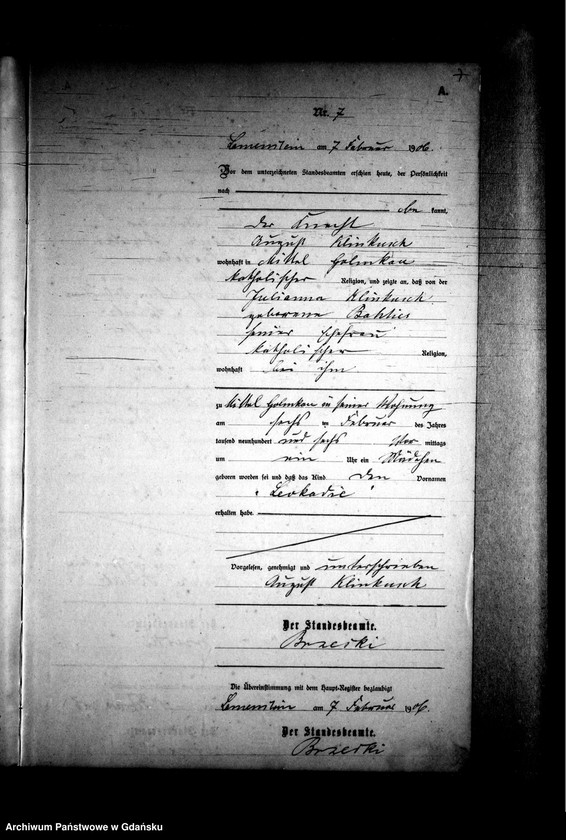 7
A.
Nr. 7
am 7 Februar 1906.
Vor dem unterzeichneten Standesbeamten erschien heute, der Persönlichkeit
nach
kannt,
der Knecht
August Klinkusch
wohnhaft in Mittel Golmkau
katholischer Religion, und zeigte an, daß von der
Julianna Klinkusch
geborene
seiner Ehefrau
katholischer Religion,
wohnhaft bei ihm
zu Mittel Golmkau in seiner Wohnung
am sechs ten Februar des Jahres
tausend neunhundert und sechs Vor mittags
um ein Uhr ein Mädchen
geboren worden sei und daß das Kind den Vornamen
„Leokadie"
erhalten habe.
Vorgelesen, genehmigt und unterschrieben
August Klinkusch
Der Standesbeamte.
Brzeski
Die Übereinstimmung mit dem Haupt-Register beglaubigt
am 7 Februar 1906.
Der Standesbeamte.
Brzeski
Archiwum Państwowe w Gdańsku